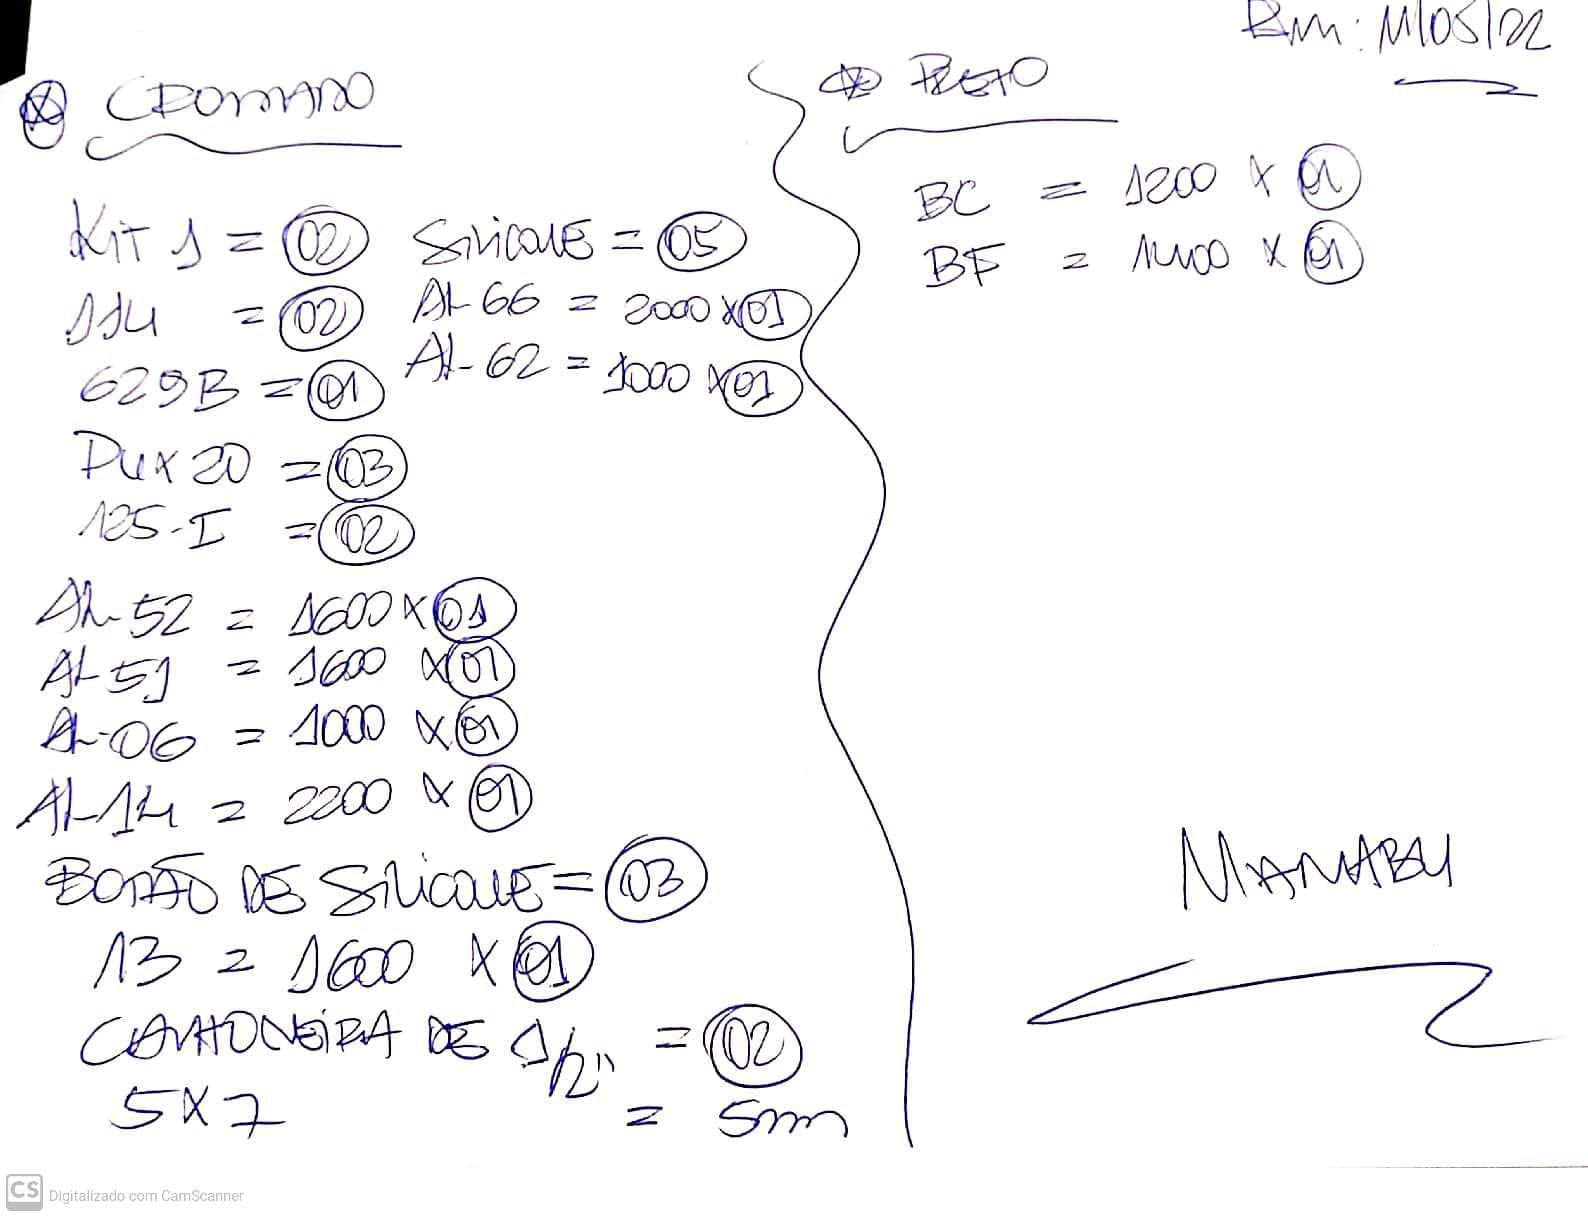 11/05/22
CROMADO
KIT 1 = 02
114 = 02
629B = 01
Pux 20 = 03
125-I = 02
AL-52 = 1600 x 01
AL-51 = 1600 x 01
AL-06 = 1000 x 01
AL-14 = 2200 x 01
BOTÃO DE SILICONE = 03
13 = 1600 x 01
CANTONEIRA DE 1/2" = 02
5x7 = 5m
SILICONE = 05
AL-66 = 2000 x 01
AL-62 = 1000 x 01
PRETO
BC = 1200 x 01
BF = 1400 x 01
MANABU
CS Digitalizado com CamScanner